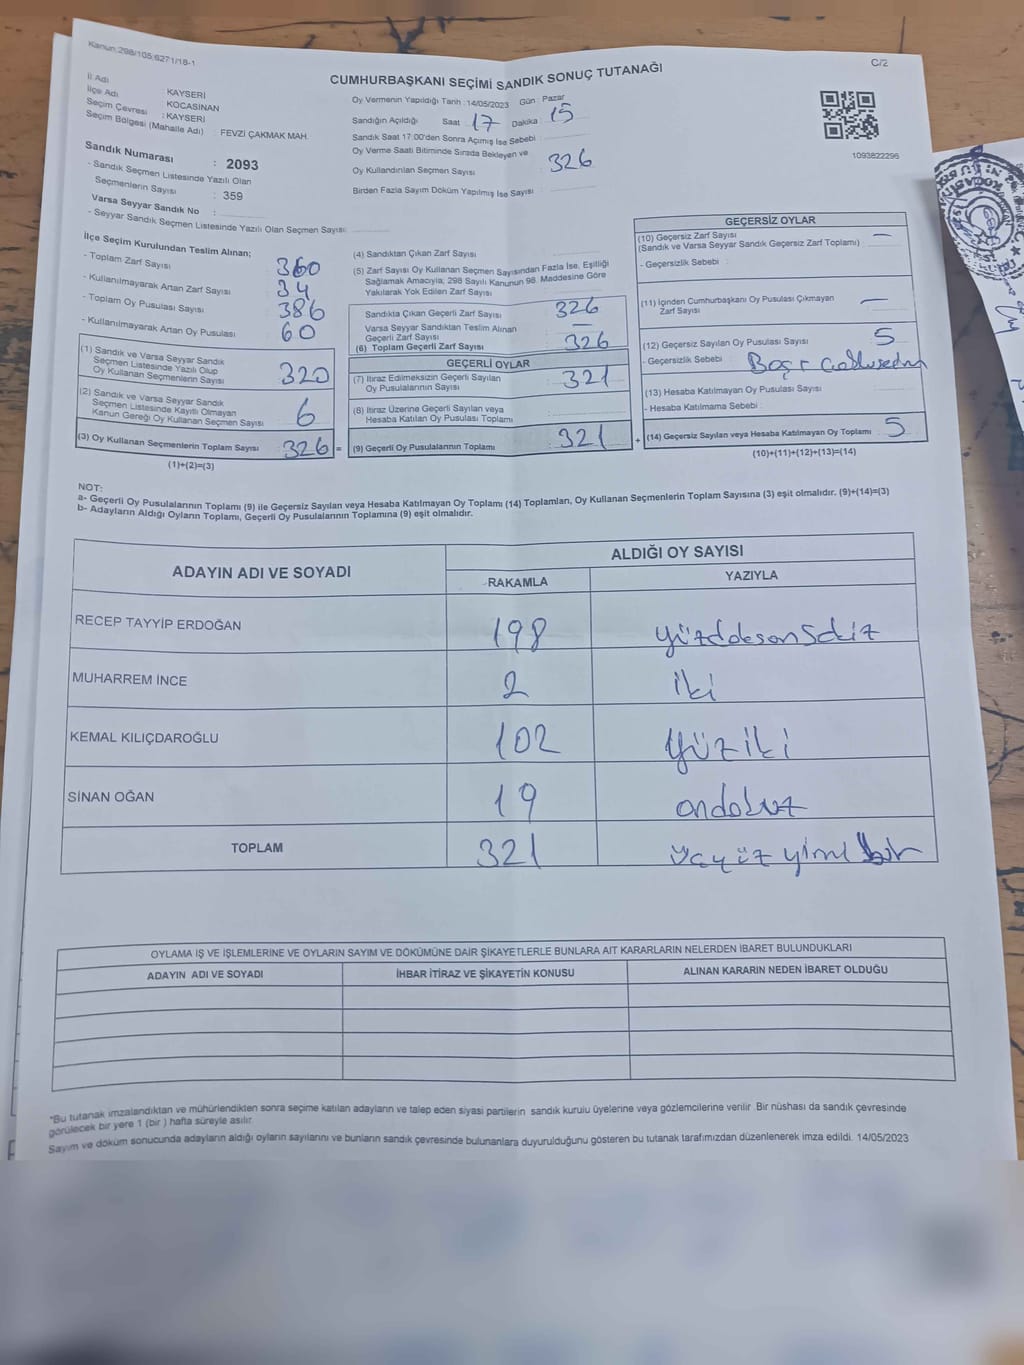 Kanun:298/105;6271/18-1
C/2
CUMHURBAŞKANI SEÇİMİ SANDIK SONUÇ TUTANAĞI
İl Adı : KAYSERİ
İlçe Adı : KOCASİNAN
Seçim Çevresi : KAYSERİ
Seçim Bölgesi (Mahalle Adı) : FEVZİ ÇAKMAK MAH.
Oy Vermenin Yapıldığı Tarih : 14/05/2023 Gün : Pazar
Sandığın Açıldığı Saat : 17 Dakika : 15
Sandık Saat 17:00'den Sonra Açımış İse Sebebi :
Oy Verme Saati Bitiminde Sırada Bekleyen ve
Oy Kullandırılan Seçmen Sayısı : 326
Birden Fazla Sayım Döküm Yapılmış İse Sayısı :
1093822296
Sandık Numarası : 2093
- Sandık Seçmen Listesinde Yazılı Olan
Seçmenlerin Sayısı : 359
Varsa Seyyar Sandık No :
- Seyyar Sandık Seçmen Listesinde Yazılı Olan Seçmen Sayısı:
İlçe Seçim Kurulundan Teslim Alınan;
- Toplam Zarf Sayısı : 360
- Kullanılmayarak Artan Zarf Sayısı : 34
- Toplam Oy Pusulası Sayısı : 386
- Kullanılmayarak Artan Oy Pusulası : 60
(1) Sandık ve Varsa Seyyar Sandık
Seçmen Listesinde Yazılı Olup
Oy Kullanan Seçmenlerin Sayısı : 320
(2) Sandık ve Varsa Seyyar Sandık
Seçmen Listesinde Kayıtlı Olmayan
Kanun Gereği Oy Kullanan Seçmen Sayısı : 6
(3) Oy Kullanan Seçmenlerin Toplam Sayısı : 326 =
(1)+(2)=(3)
(4) Sandıktan Çıkan Zarf Sayısı :
(5) Zarf Sayısı Oy Kullanan Seçmen Sayısından Fazla İse, Eşitliği
Sağlamak Amacıyla; 298 Sayılı Kanunun 98. Maddesine Göre
Yakılarak Yok Edilen Zarf Sayısı :
Sandıkta Çıkan Geçerli Zarf Sayısı : 326
Varsa Seyyar Sandıktan Teslim Alınan
Geçerli Zarf Sayısı : —
(6) Toplam Geçerli Zarf Sayısı : 326
GEÇERLİ OYLAR
(7) İtiraz Edilmeksizin Geçerli Sayılan
Oy Pusulalarının Sayısı : 321
(8) İtiraz Üzerine Geçerli Sayılan veya
Hesaba Katılan Oy Pusulası Toplamı :
(9) Geçerli Oy Pusulalarının Toplamı : 321 +
GEÇERSİZ OYLAR
(10) Geçersiz Zarf Sayısı : —
(Sandık ve Varsa Seyyar Sandık Geçersiz Zarf Toplamı)
- Geçersizlik Sebebi :
(11) İçinden Cumhurbaşkanı Oy Pusulası Çıkmayan
Zarf Sayısı : —
(12) Geçersiz Sayılan Oy Pusulası Sayısı : 5
- Geçersizlik Sebebi :
(13) Hesaba Katılmayan Oy Pusulası Sayısı :
- Hesaba Katılmama Sebebi :
(14) Geçersiz Sayılan veya Hesaba Katılmayan Oy Toplamı : 5
(10)+(11)+(12)+(13)=(14)
NOT:
a- Geçerli Oy Pusulalarının Toplamı (9) ile Geçersiz Sayılan veya Hesaba Katılmayan Oy Toplamı (14) Toplamları, Oy Kullanan Seçmenlerin Toplam Sayısına (3) eşit olmalıdır. (9)+(14)=(3)
b- Adayların Aldığı Oyların Toplamı, Geçerli Oy Pusulalarının Toplamına (9) eşit olmalıdır.
ADAYIN ADI VE SOYADI
ALDIĞI OY SAYISI
RAKAMLA YAZIYLA
RECEP TAYYİP ERDOĞAN 198 yüzdoksansekiz
MUHARREM İNCE 2 iki
KEMAL KILIÇDAROĞLU 102 yüziki
SİNAN OĞAN 19 ondokuz
TOPLAM 321 üçyüz yirmi bir
OYLAMA İŞ VE İŞLEMLERİNE VE OYLARIN SAYIM VE DÖKÜMÜNE DAİR ŞİKAYETLERLE BUNLARA AİT KARARLARIN NELERDEN İBARET BULUNDUKLARI
ADAYIN ADI VE SOYADI İHBAR İTİRAZ VE ŞİKAYETİN KONUSU ALINAN KARARIN NEDEN İBARET OLDUĞU
*Bu tutanak imzalandıktan ve mühürlendikten sonra seçime katılan adayların ve talep eden siyasi partilerin sandık kurulu üyelerine veya gözlemcilerine verilir. Bir nüshası da sandık çevresinde
görülecek bir yere 1 (bir ) hafta süreyle asılır.
Sayım ve döküm sonucunda adayların aldığı oyların sayılarını ve bunların sandık çevresinde bulunanlara duyurulduğunu gösteren bu tutanak tarafımızdan düzenlenerek imza edildi. 14/05/2023